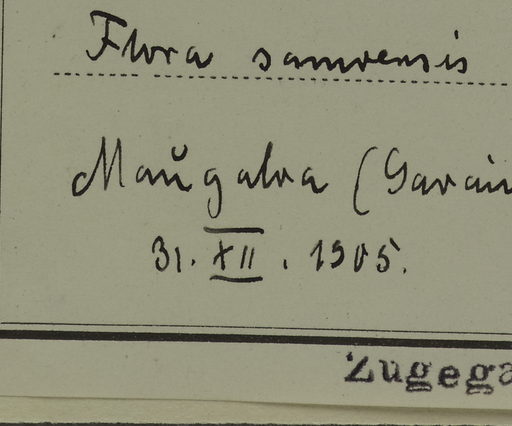 Flora samoensis
Maŭgaloa (Savaii
31. XII. 1905.
Zugega